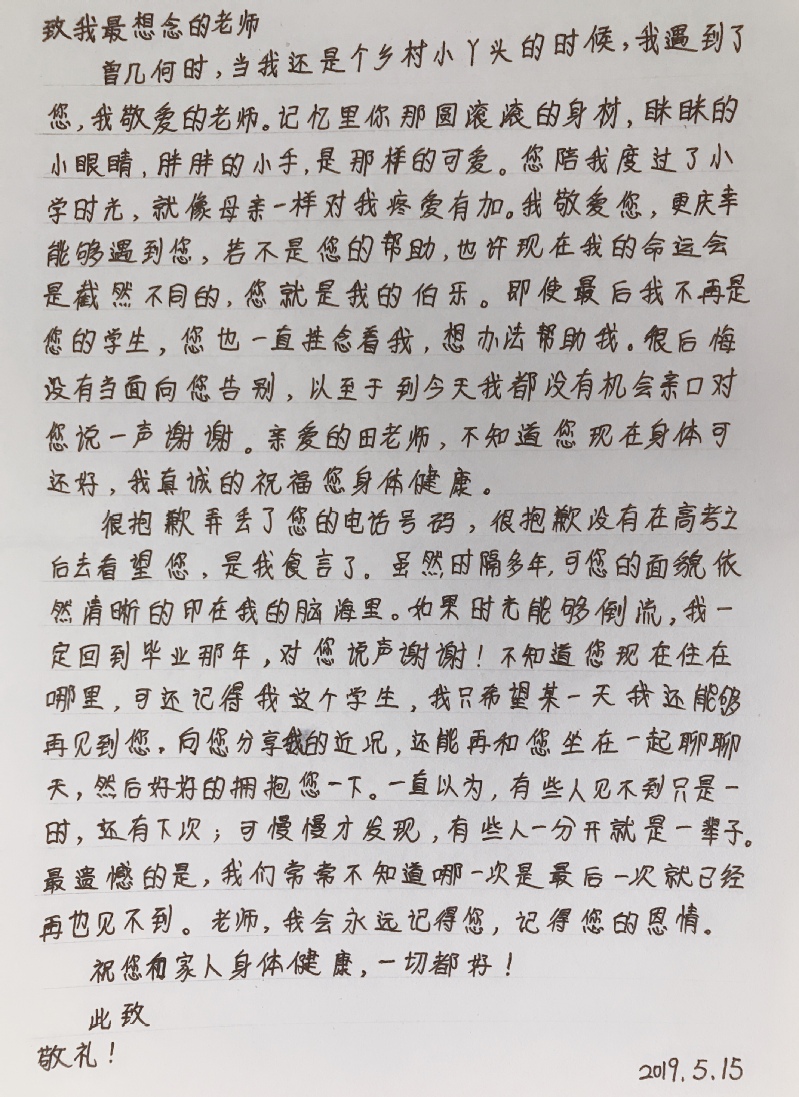 致我最想念的老师
曾几何时，当我还是个乡村小丫头的时候，我遇到了
您，我敬爱的老师。记忆里你那圆滚滚的身材，眯眯的
小眼睛，胖胖的小手，是那样的可爱。您陪我度过了小
学时光，就像母亲一样对我疼爱有加。我敬爱您，更庆幸
能够遇到您，若不是您的帮助，也许现在我的命运会
是截然不同的，您就是我的伯乐。即使最后我不再是
您的学生，您也一直挂念着我，想办法帮助我。很后悔
没有当面向您告别，以至于到今天我都没有机会亲口对
您说一声谢谢。亲爱的田老师，不知道您现在身体可
还好，我真诚的祝福您身体健康。
很抱歉弄丢了您的电话号码，很抱歉没有在高考之
后去看望您，是我食言了。虽然时隔多年，可您的面貌依
然清晰的印在我的脑海里。如果时光能够倒流，我一
定回到毕业那年，对您说声谢谢！不知道您现在住在
哪里，可还记得我这个学生，我只希望某一天我还能够
再见到您，向您分享我的近况，还能再和您坐在一起聊聊
天，然后好好的拥抱您一下。一直以为，有些人见不到只是一
时，还有下次；可慢慢才发现，有些人一分开就是一辈子。
最遗憾的是，我们常常不知道哪一次是最后一次就已经
再也见不到。老师，我会永远记得您，记得您的恩情。
祝您和家人身体健康，一切都好！
此致
敬礼！
2019.5.15